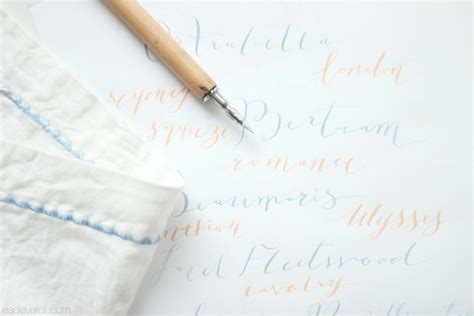 Arabella
london
regency
squeeze
Bertram
romance
Beaumaris
Ulysses
nthian
Lord Fleetwood
cavalry
eadeverell.com